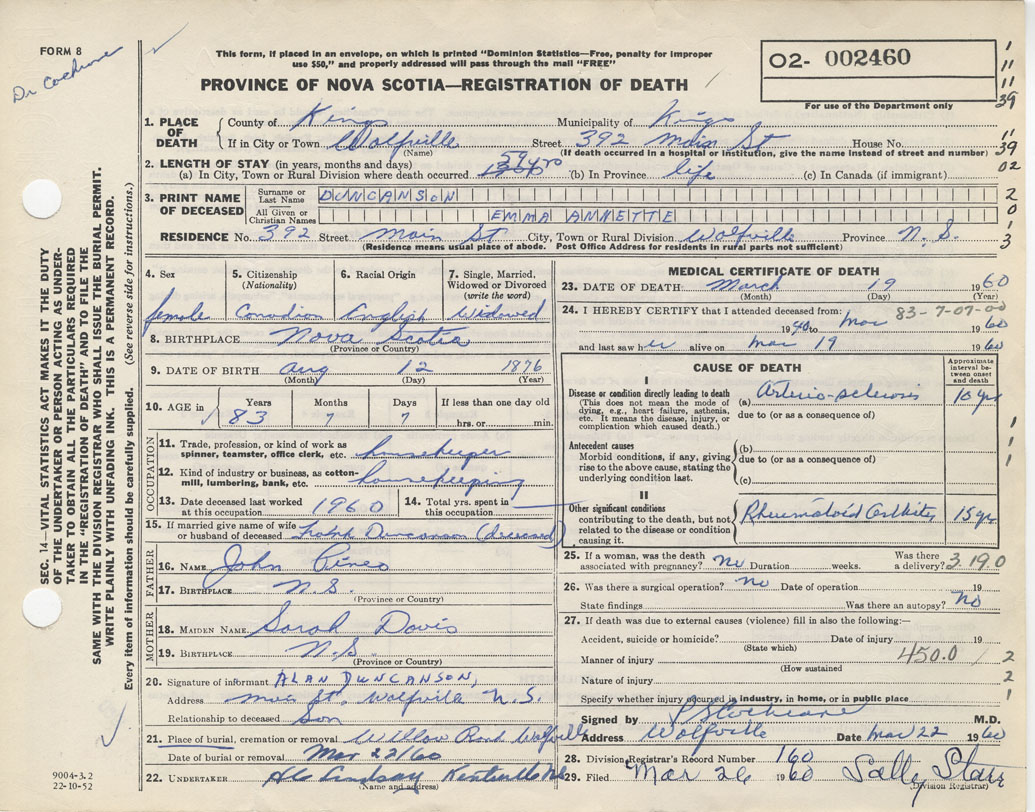 FORM 8
Dr Cochrane
This form, if placed in an envelope, on which is printed "Dominion Statistics—Free, penalty for improper
use $50," and properly addressed will pass through the mail "FREE"
PROVINCE OF NOVA SCOTIA—REGISTRATION OF DEATH
02- 002460
For use of the Department only
1. PLACE OF DEATH County of Kings Municipality of Kings
If in City or Town Wolfville Street 392 Main St House No.
(Name) (If death occurred in a hospital or institution, give the name instead of street and number)
2. LENGTH OF STAY (in years, months and days)
(a) In City, Town or Rural Division where death occurred 59 yrs (b) In Province life (c) In Canada (if immigrant)
3. PRINT NAME OF DECEASED Surname or Last Name DUNCANSON
All Given or Christian Names EMMA ANNETTE
RESIDENCE No. 392 Street Main St City, Town or Rural Division Wolfville Province N.S.
(Residence means usual place of abode. Post Office Address for residents in rural parts not sufficient)
4. Sex female
5. Citizenship (Nationality) Canadian
6. Racial Origin English
7. Single, Married, Widowed or Divorced (write the word) Widowed
8. BIRTHPLACE Nova Scotia
(Province or Country)
9. DATE OF BIRTH Aug 12 1876
(Month) (Day) (Year)
10. AGE in Years 83 Months 7 Days 7 If less than one day old hrs. or min.
OCCUPATION
11. Trade, profession, or kind of work as
spinner, teamster, office clerk, etc. housekeeper
12. Kind of industry or business, as cotton-
mill, lumbering, bank, etc. housekeeping
13. Date deceased last worked
at this occupation 1960
14. Total yrs. spent in
this occupation
15. If married give name of wife
or husband of deceased Duncanson (deceased)
FATHER
16. NAME John Pineo
17. BIRTHPLACE N.S.
(Province or Country)
MOTHER
18. MAIDEN NAME Sarah Davis
19. BIRTHPLACE N.S.
(Province or Country)
20. Signature of informant ALAN DUNCANSON,
Address Main St. Wolfville N.S.
Relationship to deceased Son
21. Place of burial, cremation or removal Willow Bank Wolfville
Date of burial or removal Mar 22/60
22. UNDERTAKER Lindsay Kentville NS
(Name and address)
MEDICAL CERTIFICATE OF DEATH
23. DATE OF DEATH March 19 1960
(Month) (Day) (Year)
83-7-07-00
24. I HEREBY CERTIFY that I attended deceased from:
1940 to Mar 1960
and last saw her alive on Mar 19 1960
CAUSE OF DEATH
Approximate interval between onset and death
I
Disease or condition directly leading to death
(This does not mean the mode of
dying, e.g., heart failure, asthenia,
etc. It means the disease, injury, or
complication which caused death.)
(a) Arterio-sclerosis 10 yrs
due to (or as a consequence of)
Antecedent causes
Morbid conditions, if any, giving
rise to the above cause, stating the
underlying condition last.
(b)
due to (or as a consequence of)
(c)
II
Other significant conditions
contributing to the death, but not
related to the disease or condition
causing it.
Rheumatoid Arthritis 15 yrs
25. If a woman, was the death
associated with pregnancy? No Duration weeks. Was there
a delivery? 3.19.0
26. Was there a surgical operation? No Date of operation 19
State findings Was there an autopsy? No
27. If death was due to external causes (violence) fill in also the following:—
Accident, suicide or homicide? Date of injury 19
(State which)
450.0
Manner of injury
(How sustained
Nature of injury
Specify whether injury occurred in industry, in home, or in public place
Signed by P S Cochrane M.D.
Address Wolfville Date Mar 22 1960
28. Division Registrar's Record Number 160
29. Filed Mar 26 1960 Sally Starr
(Division Registrar)
SEC. 14—VITAL STATISTICS ACT MAKES IT THE DUTY
OF THE UNDERTAKER OR PERSON ACTING AS UNDER-
TAKER TO OBTAIN ALL THE PARTICULARS REQUIRED
IN THE "REGISTRATION OF DEATH" AND TO FILE THE
SAME WITH THE DIVISION REGISTRAR WHO SHALL ISSUE THE BURIAL PERMIT.
WRITE PLAINLY WITH UNFADING INK. THIS IS A PERMANENT RECORD.
Every item of information should be carefully supplied. (See reverse side for instructions.)
9004-3.2
22-10-52